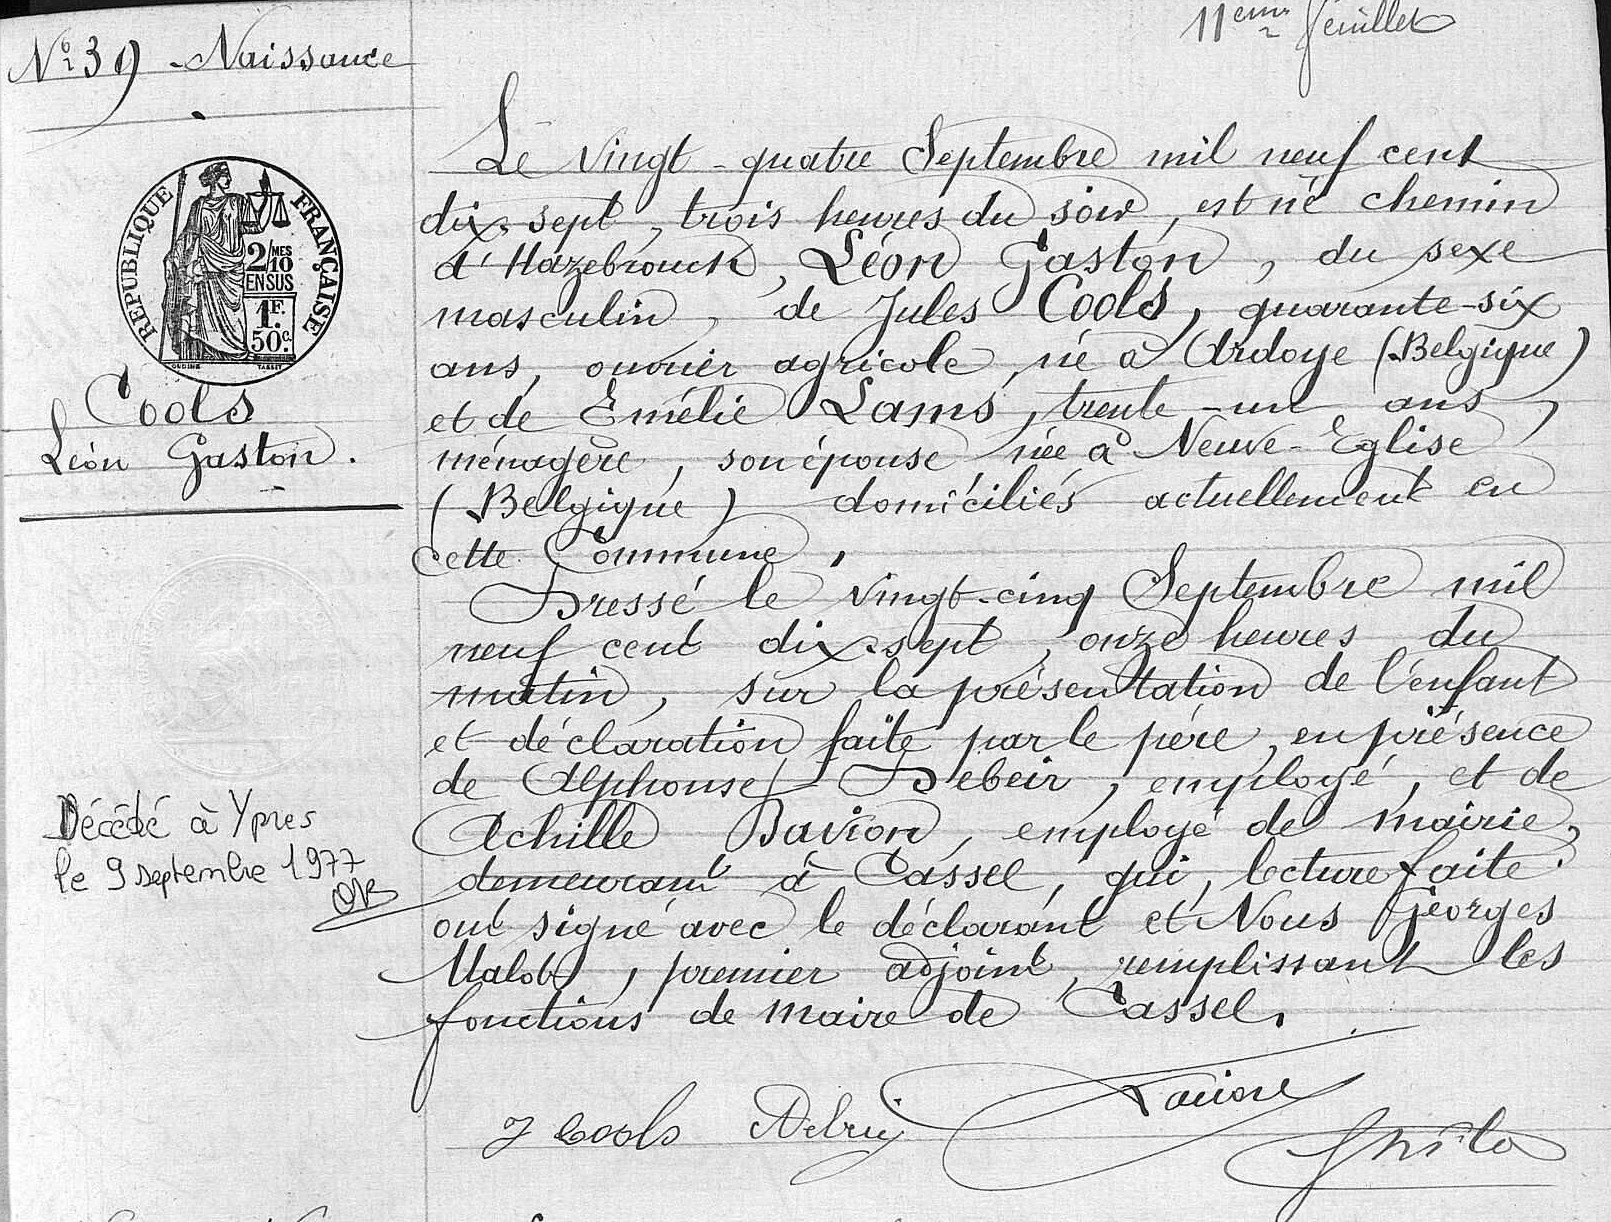 11eme feuillet
Nº 39 - Naissance
REPUBLIQUE FRANÇAISE
2/MES
10
EN SUS
1F.
50c.
OUDINÉ TASSET
Cools
Léon Gaston.
Le vingt-quatre Septembre mil neuf cent
dix-sept, trois heures du soir, est né chemin
d'Hazebrouck, Léon Gaston, du sexe
masculin, de Jules Cools, quarante-six
ans, ouvrier agricole, né à Ardoye (Belgique)
et de Emélie Lams, trente-un ans,
ménagère, son épouse née à Neuve-Eglise
(Belgique) domiciliés actuellement en
cette Commune.
Dressé le vingt-cinq Septembre mil
neuf cent dix-sept, onze heures du
matin, sur la présentation de l'enfant
et déclaration faite par le père, en présence
de Alphonse Debeir, employé, et de
Achille Bavion, employé de mairie,
demeurant à Cassel, qui, lecture faite
ont signé avec le déclarant et Nous Georges
Malot, premier adjoint, remplissant les
fonctions de maire de Cassel.
Décédé à Ypres
le 9 septembre 1977
J Cools